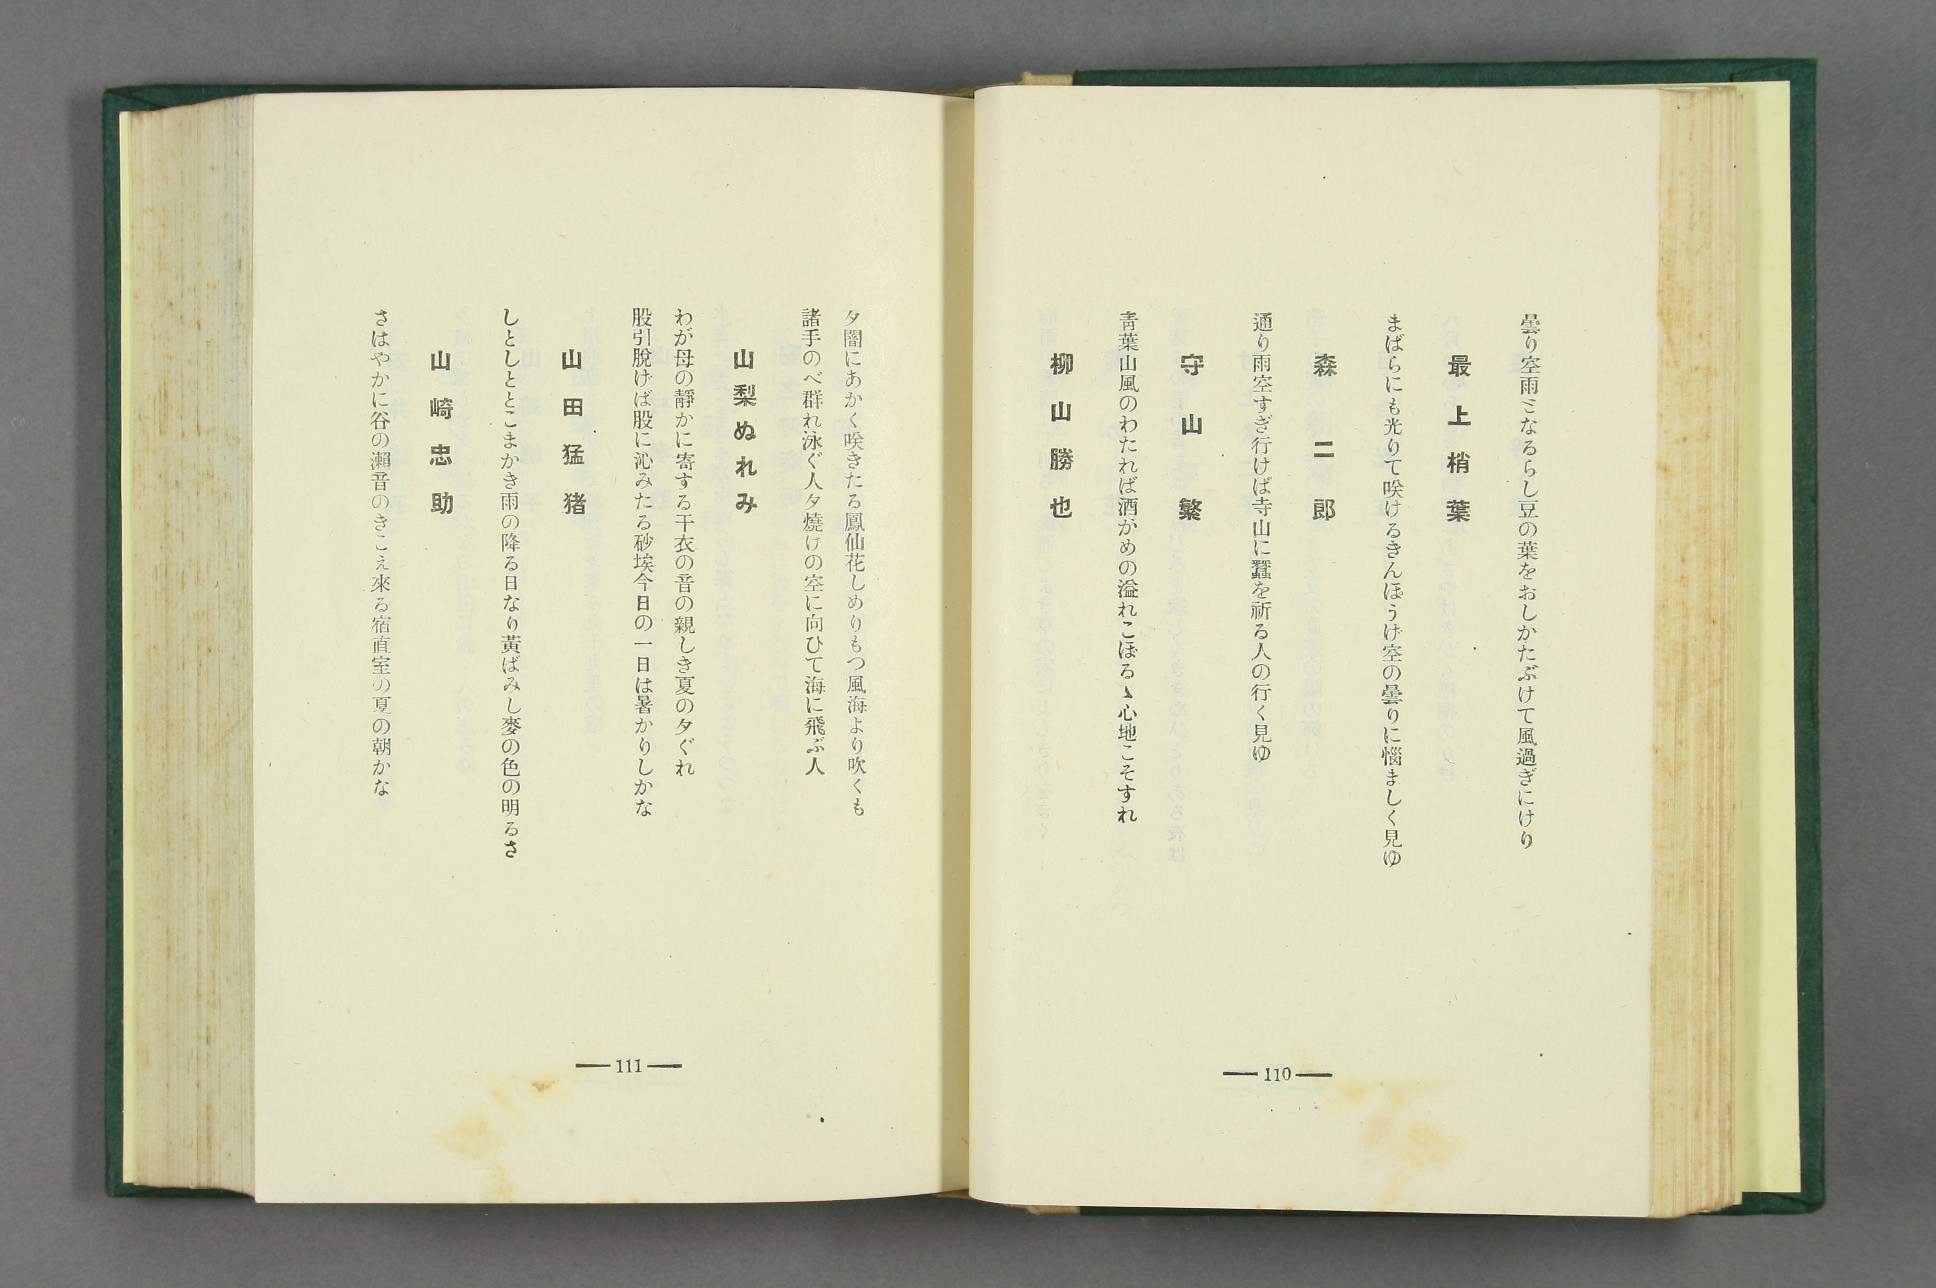 曇り空雨となるらし豆の葉をおしかたぶけて風過ぎにけり
最上梢葉
まばらにも光りて咲けるきんぽうげ空の曇りに惱ましく見ゆ
森二郎
通り雨空すぎ行けば寺山に蠶を祈る人の行く見ゆ
守山繁
靑葉山風のわたれば酒がめの溢れこぼるゝ心地こそすれ
柳山勝也
110
夕闇にあかく咲きたる鳳仙花しめりもつ風海より吹くも
諸手のべ群れ泳ぐ人夕燒けの空に向ひて海に飛ぶ人
山梨ぬれみ
わが母の靜かに寄する干衣の音の親しき夏の夕ぐれ
股引脫げば股に沁みたる砂埃今日の一日は暑かりしかな
山田猛猪
しとしととこまかき雨の降る日なり黃ばみし麥の色の明るさ
山崎忠助
さはやかに谷の瀨音のきこえ來る宿直室の夏の朝かな
111